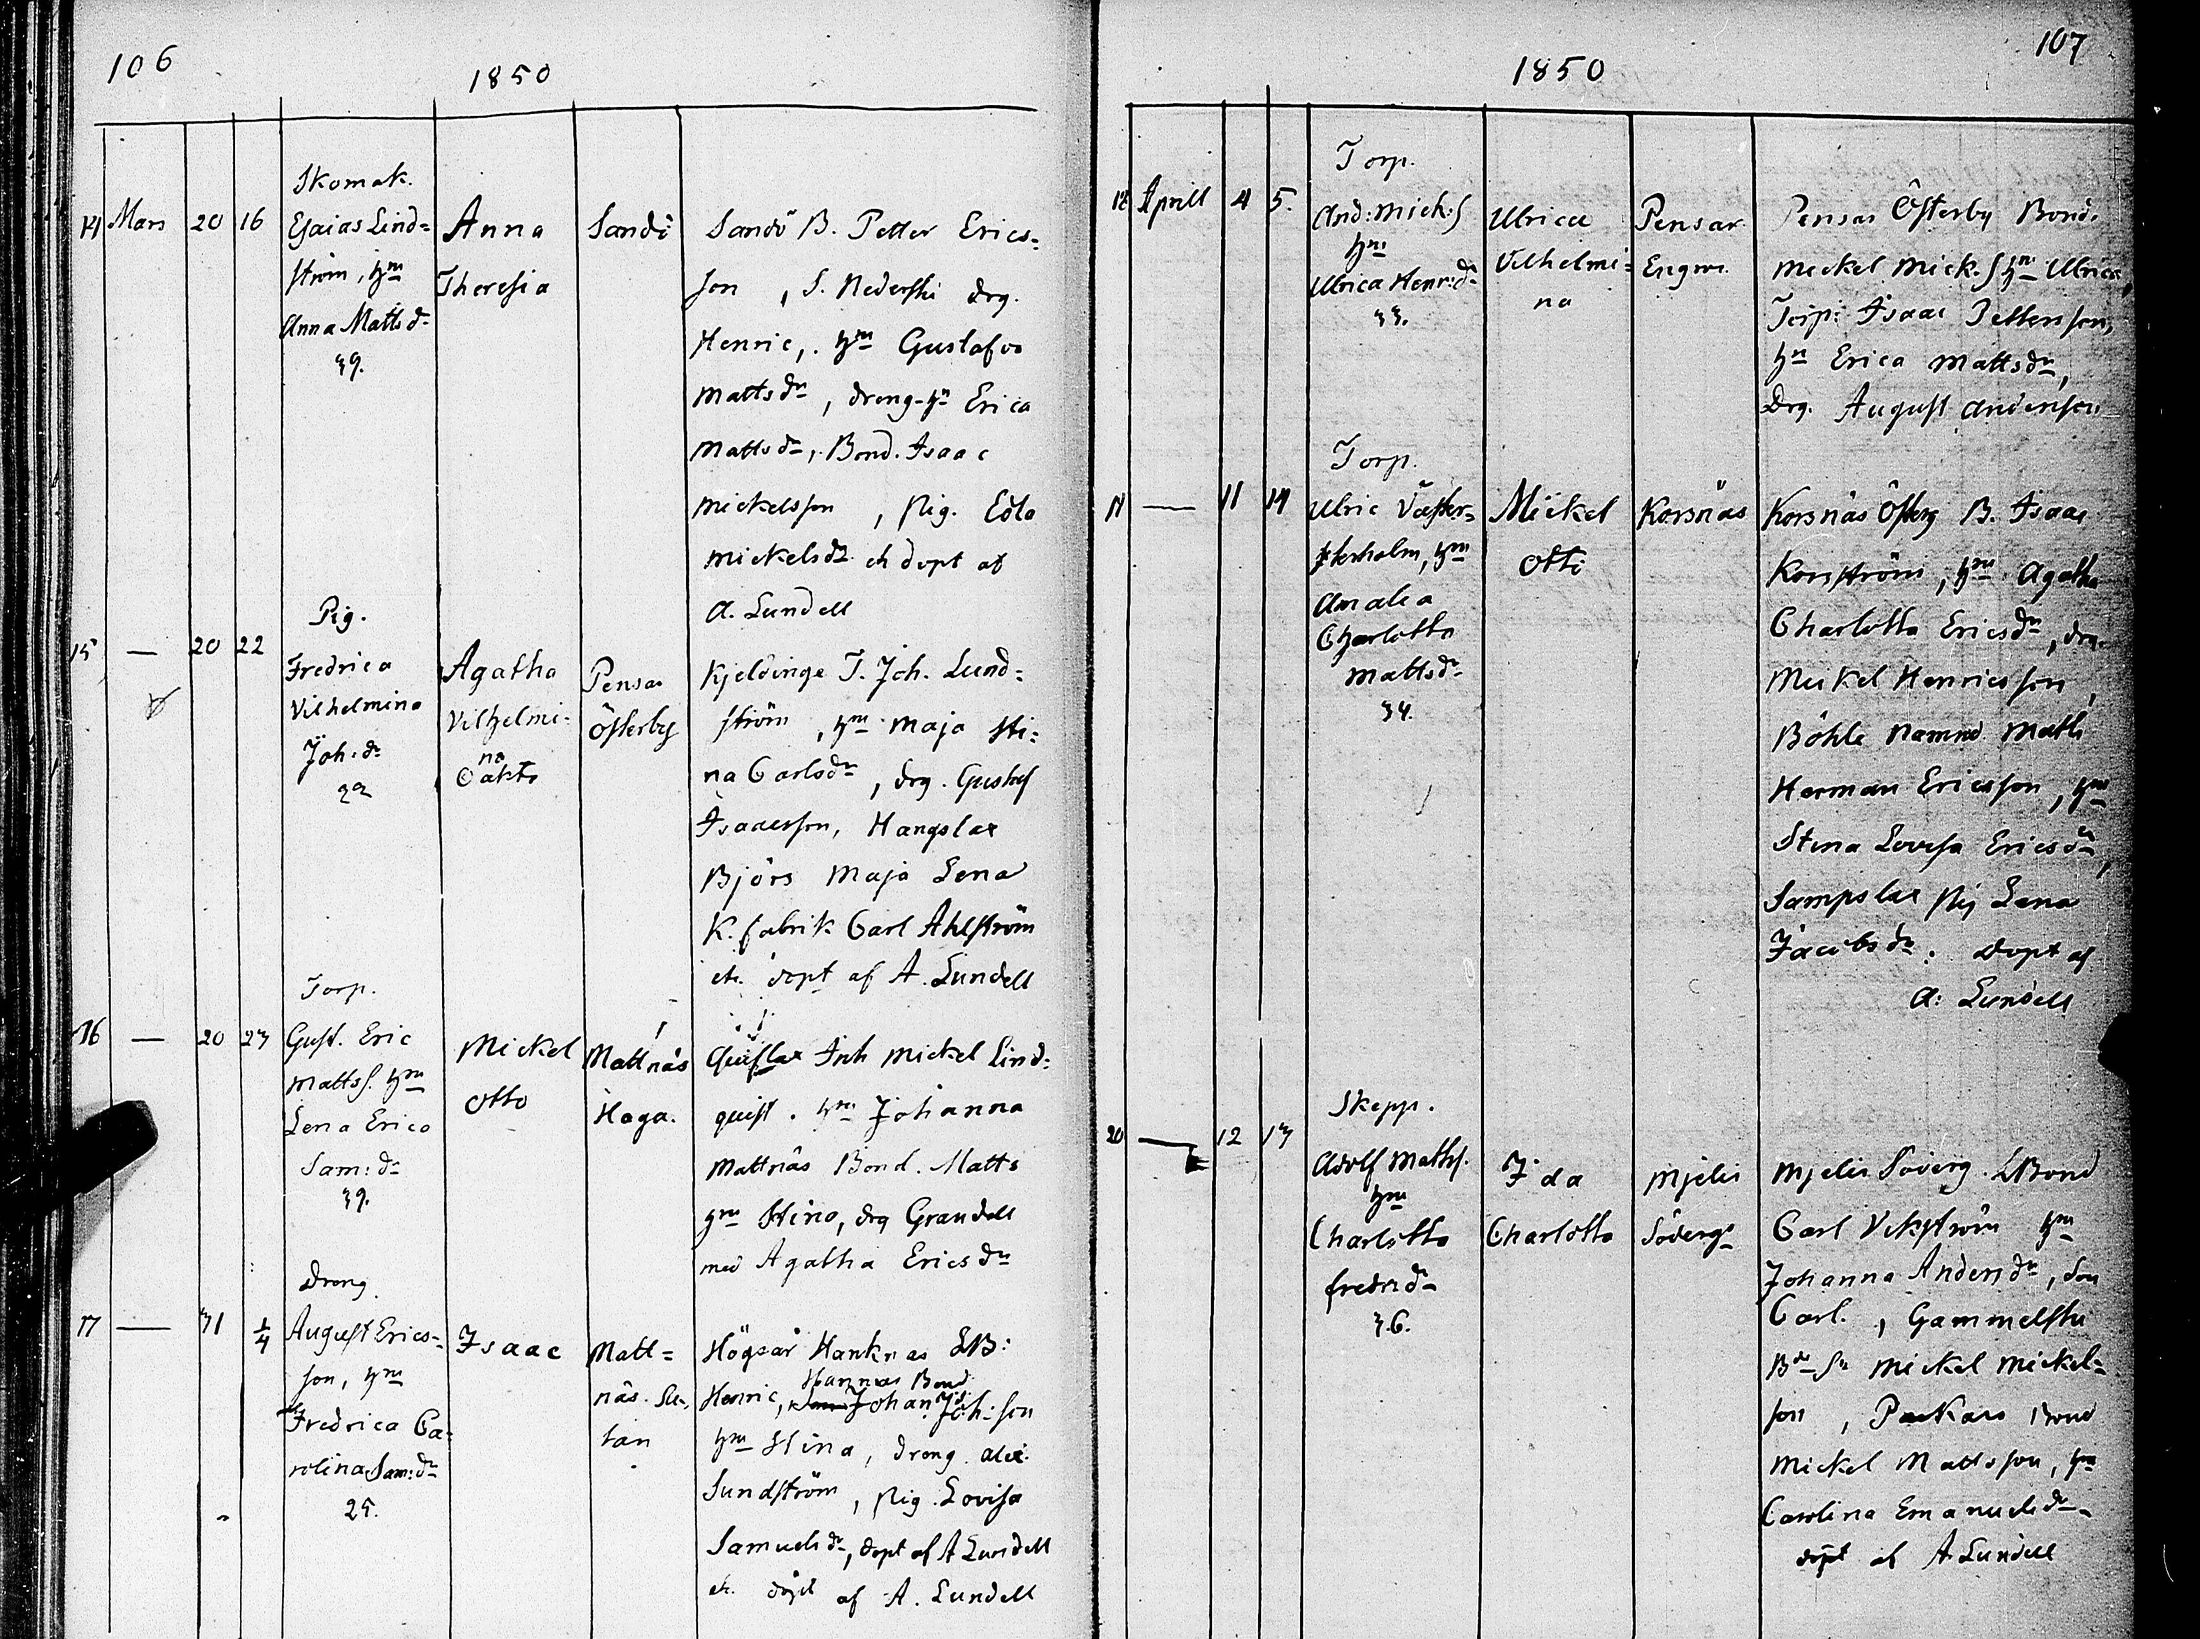 106
1850
14 Mars 20 16
Skomak.
Esaias Lind=
ström, hm
Anna Mattsd
39.
Anna
Theresia
Sandö
Sandö B. Petter Erics=
son, S. Nederski drg.
Henric, hm Gustafva
Mattsdr, dreng-hn Erica
Mattsdr, Bond. Isaac
Mickelsson, Pig. Edla
Mickelsdr. ch döpt af
A. Lundell
15 — 20 22
Pig.
Fredrica
Vilhelmina
Joh:d
22
Agatha
Vilhelmi=
na
Oäkta
Pensar
Österby
Kjeldinge T. Joh. Lund=
ström, hm Maja Sti=
na Carlsdr, drg. Gustaf
Isaacsson, Hangslax
Björs Maja Lena
K. fabrik Carl Ahlström
etc. döpt af A. Lundell
16 — 20 23
Torp.
Gust. Eric
Mattss. hm
Lena Erica
Sam:d
39.
Mickel
Otto
Mattnäs
Haga.
Inh Mickel Lind=
quist. hm Johanna
Mattnäs Bond. Matts
hm Stina, drg Grandell
med Agatha Ericsdr
17 — 31 1/4
Dreng
August Erics=
son, hm
Fredrica Ca=
rolina Sam:dr
25.
Isaac
Matt=
näs. Su-
tan
Högsar Hanknas LB:
Hannäs Bond
Henric, Johan Joh:son
hm Stina, dreng Alex.
Sundström, Pig. Lovisa
Samuelsdr, döpt af A Lundell
etc. döpt af A. Lundell
107
1850
18 Aprill 4 5.
Torp.
And: Mick:s
hm
Ulrica Henr:d
33.
Ulrica
Vilhelmi=
na
Pensar
Engm.
Pensar Österby Bond.
Mickel Mick.s hm Ulrica,
Torp: Isaac Pettersson,
hn Erica Mattsdr,
Drg. August Andersson
19 — 11 14
Torp.
Ulric Väster=
holm, hm
Amalia
Charlotta
Mattsd
34.
Mickel
Otto
Korsnäs
Korsnäs Österg B. Isaac
Korsström, hm Agatha
Charlotta Ericsdr, drg.
Mickel Henricsson,
Böhle Namnd Matts
Herman Ericsson, hm
Stina Lovisa Ericsdr,
Sampslax Pig Lena
Jacobsdr. döpt af
A: Lundell
20 — 12 13
Skepp.
Adolf Mattss.
hm
Charlotta
Fredr:d
36.
Ida
Charlotta
Mjelis
Söderg
Mjelis Söderg. LBond
Carl Vikström hm
Johanna Andersdr, Son
Carl., Gammelstu
Bde-Sn Mickel Mickel=
son, Parkars Bond
Mickel Mattsson, hm
Carolina Emanuelsdr
döpt af A Lundell